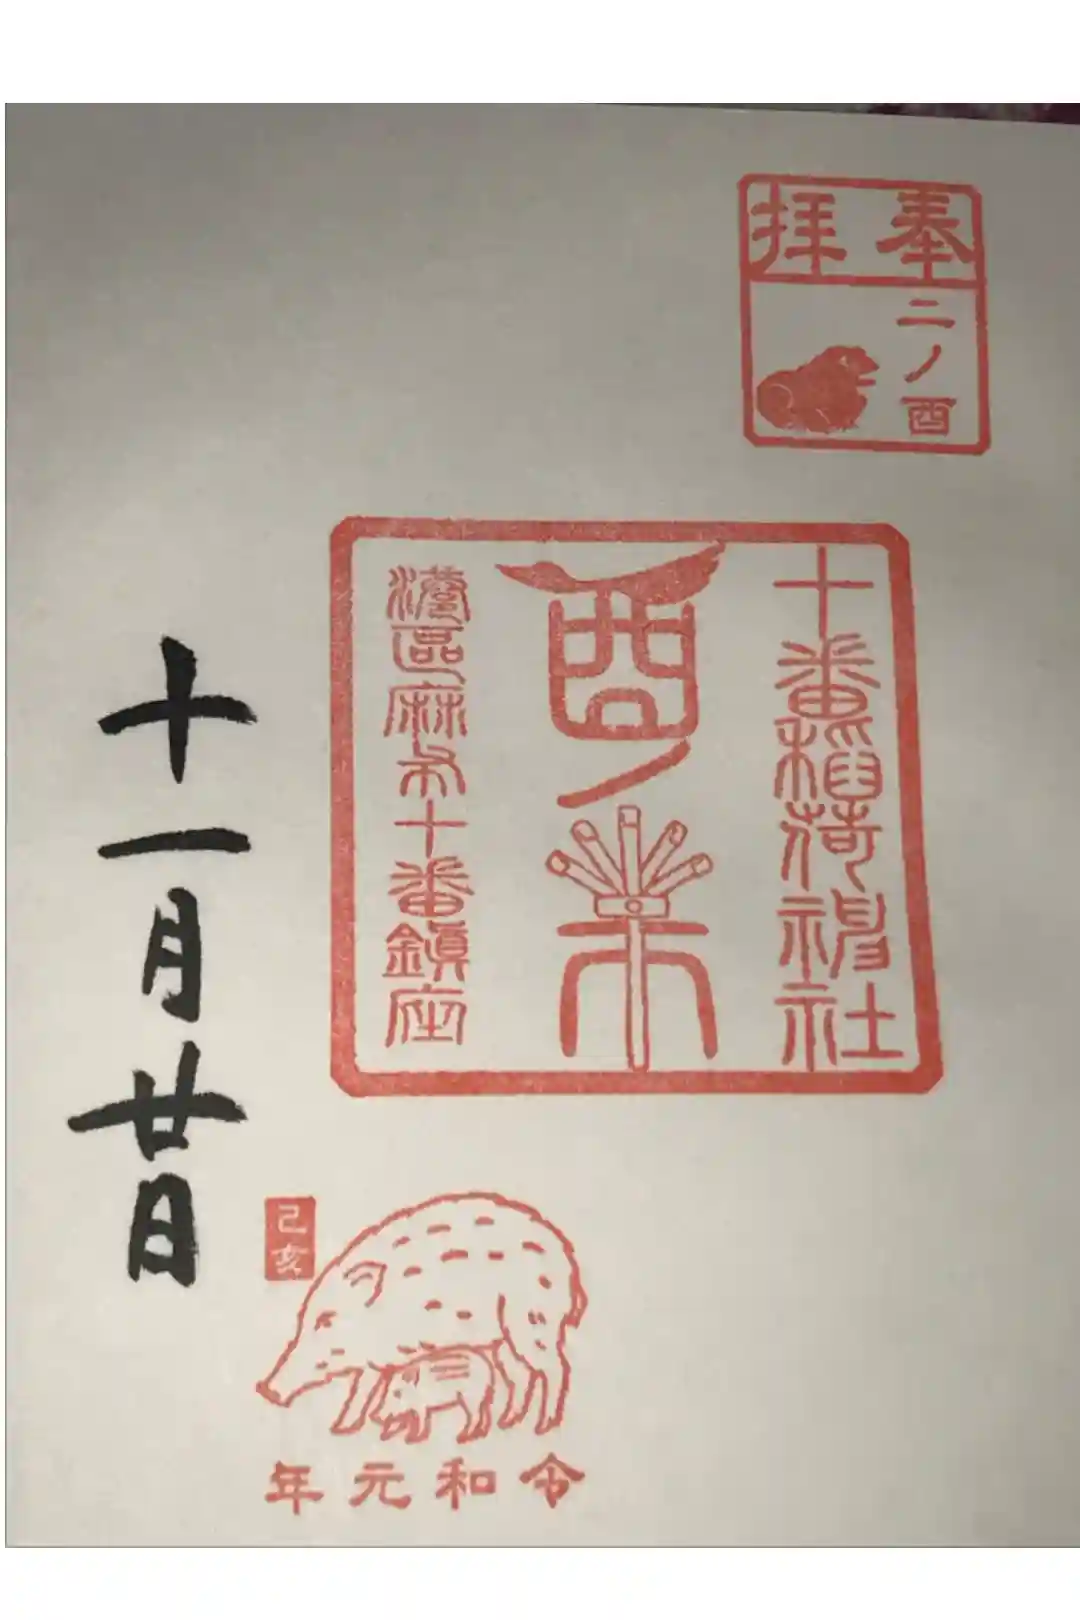 奉拝
二ノ酉
十番稲荷神社
酉ノ市
港区麻布十番鎮座
十一月廿日
己亥
令和元年